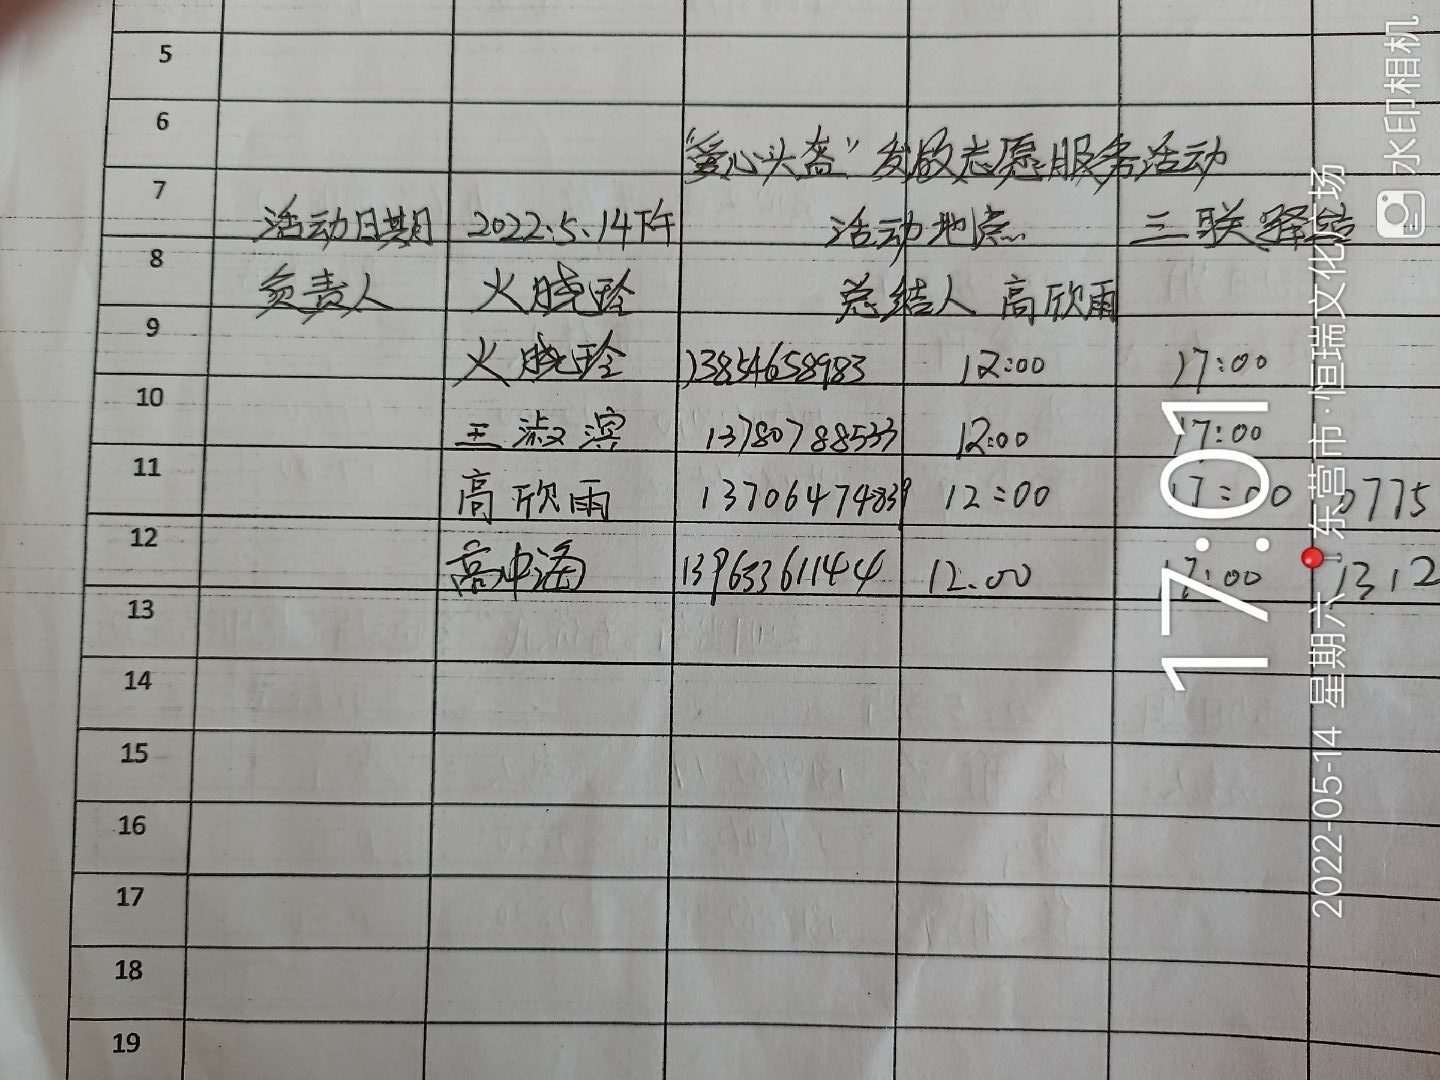 5
6
"爱心头盔"发放志愿服务活动
7
活动日期 2022.5.14下午 活动地点 三联驿站
8
负责人 火晓玲 总结人 高欣雨
9
火晓玲 13854658983 12:00 17:00
10
王淑滨 13780788533 12:00 17:00
11
高欣雨 13706474839 12:00 17:00 3775
12
高冲涵 13963361144 12.00 17:00 1312
13
14
15
16
17
18
19
17:01
2022-05-14 星期六 东营市·恒瑞文化广场
水印相机